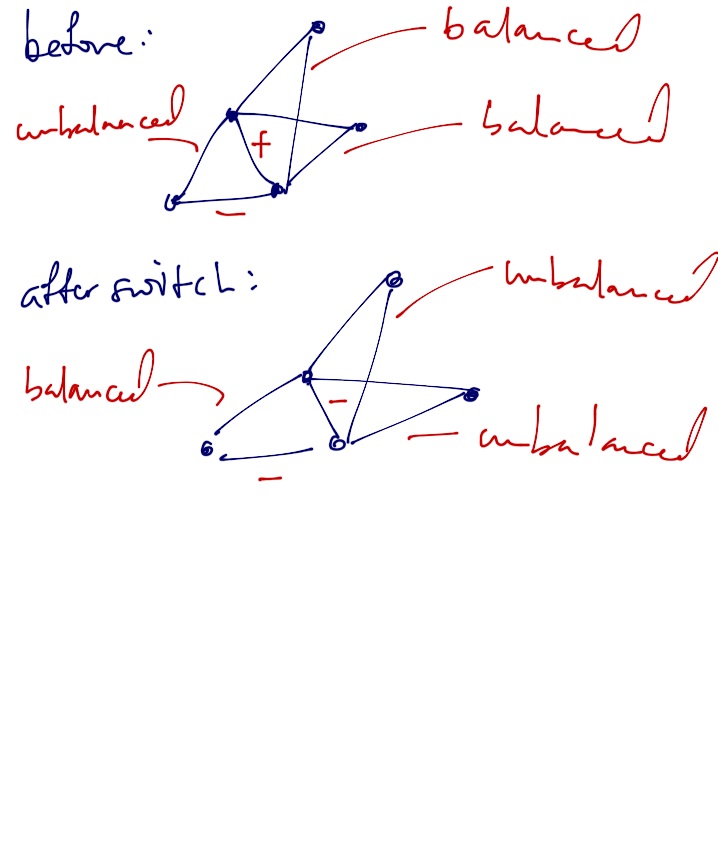 before:
balanced
unbalanced
balanced
f
−
after switch:
unbalanced
balanced
−
unbalanced
−